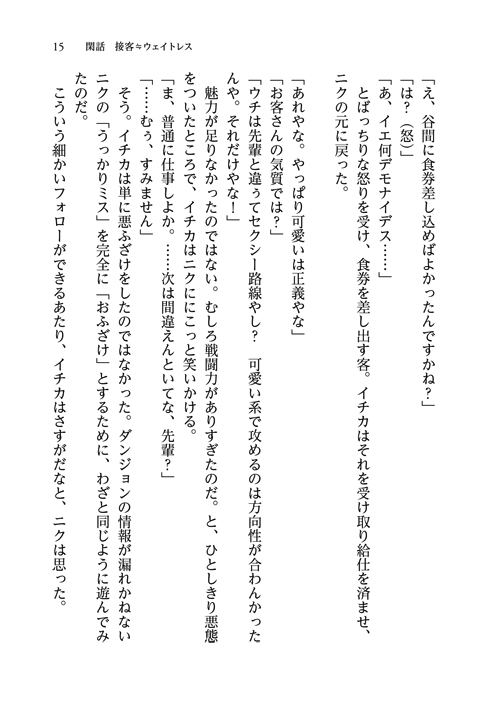 15　閑話　接客≒ウェイトレス
「え、谷間に食券差し込めばよかったんですかね？」
「は？（怒）」
「あ、イエ何デモナイデス……」
　とばっちりな怒りを受け、食券を差し出す客。イチカはそれを受け取り給仕を済ませ、
ニクの元に戻った。
「あれやな。やっぱり可愛いは正義やな」
「お客さんの気質では？」
「ウチは先輩と違ぅてセクシー路線やし？　可愛い系で攻めるのは方向性が合わんかった
んや。それだけやな！」
　魅力が足りなかったのではない。むしろ戦闘力がありすぎたのだ。と、ひとしきり悪態
をついたところで、イチカはニクににこっと笑いかける。
「ま、普通に仕事しよか。……次は間違えんといてな、先輩？」
「……むぅ、すみません」
　そう。イチカは単に悪ふざけをしたのではなかった。ダンジョンの情報が漏れかねない
ニクの「うっかりミス」を完全に「おふざけ」とするために、わざと同じように遊んでみ
たのだ。
　こういう細かいフォローができるあたり、イチカはさすがだなと、ニクは思った。